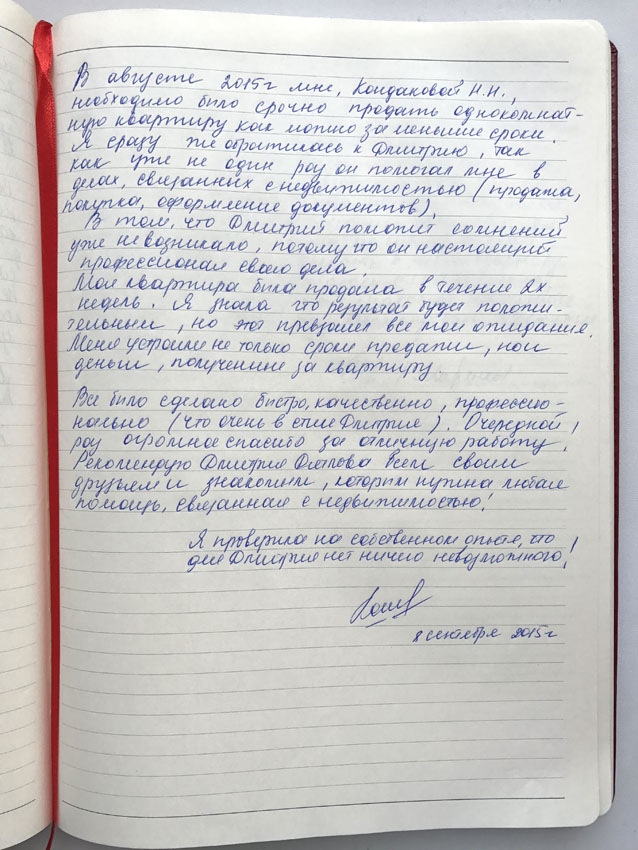 В августе 2015г мне, Кондаковой Н.Н.,
необходимо было срочно продать однокомнат-
ную квартиру как можно за меньшие сроки.
Я сразу же обратилась к Дмитрию, так
как уже не один раз он помогал мне в
делах, связанных с недвижимостью (продажа,
покупка, оформление документов).
В том, что Дмитрий поможет сомнений
уже не возникало, потому что он настоящий
профессионал своего дела.
Моя квартира была продана в течение 2х
недель. Я знала что результат будет положи-
тельным, но этот превзошел все мои ожидания.
Меня устроили не только сроки продажи, но и
деньги, полученные за квартиру.
Все было сделано быстро, качественно, профессио-
нально (что очень в стиле Дмитрия). Очередной
раз огромное спасибо за отличную работу!
Рекомендую Дмитрия всем своим
друзьям и знакомым, которым нужна любая
помощь, связанная с недвижимостью!
Я проверила на собственном опыте, что
для Дмитрия нет ничего невозможного!
8 сентября 2015г